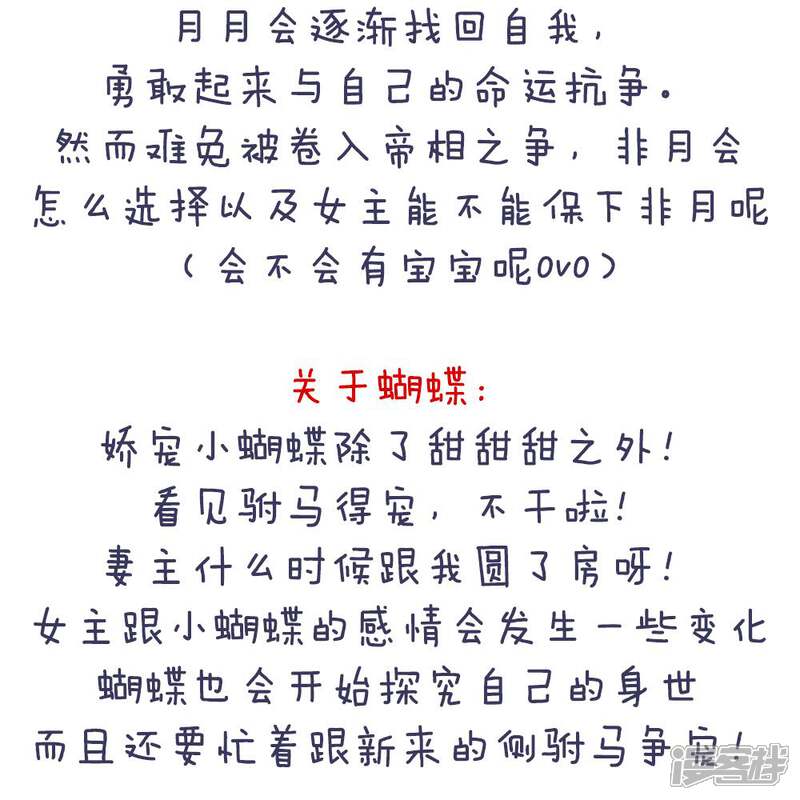 月月会逐渐找回自我，
勇敢起来与自己的命运抗争。
然而难免被卷入帝相之争，非月会
怎么选择以及女主能不能保下非月呢
（会不会有宝宝呢OVO）
关于蝴蝶：
娇宠小蝴蝶除了甜甜甜之外！
看见驸马得宠，不干啦！
妻主什么时候跟我圆了房呀！
女主跟小蝴蝶的感情会发生一些变化
蝴蝶也会开始探究自己的身世
而且还要忙着跟新来的侧驸马争宠！
漫客栈